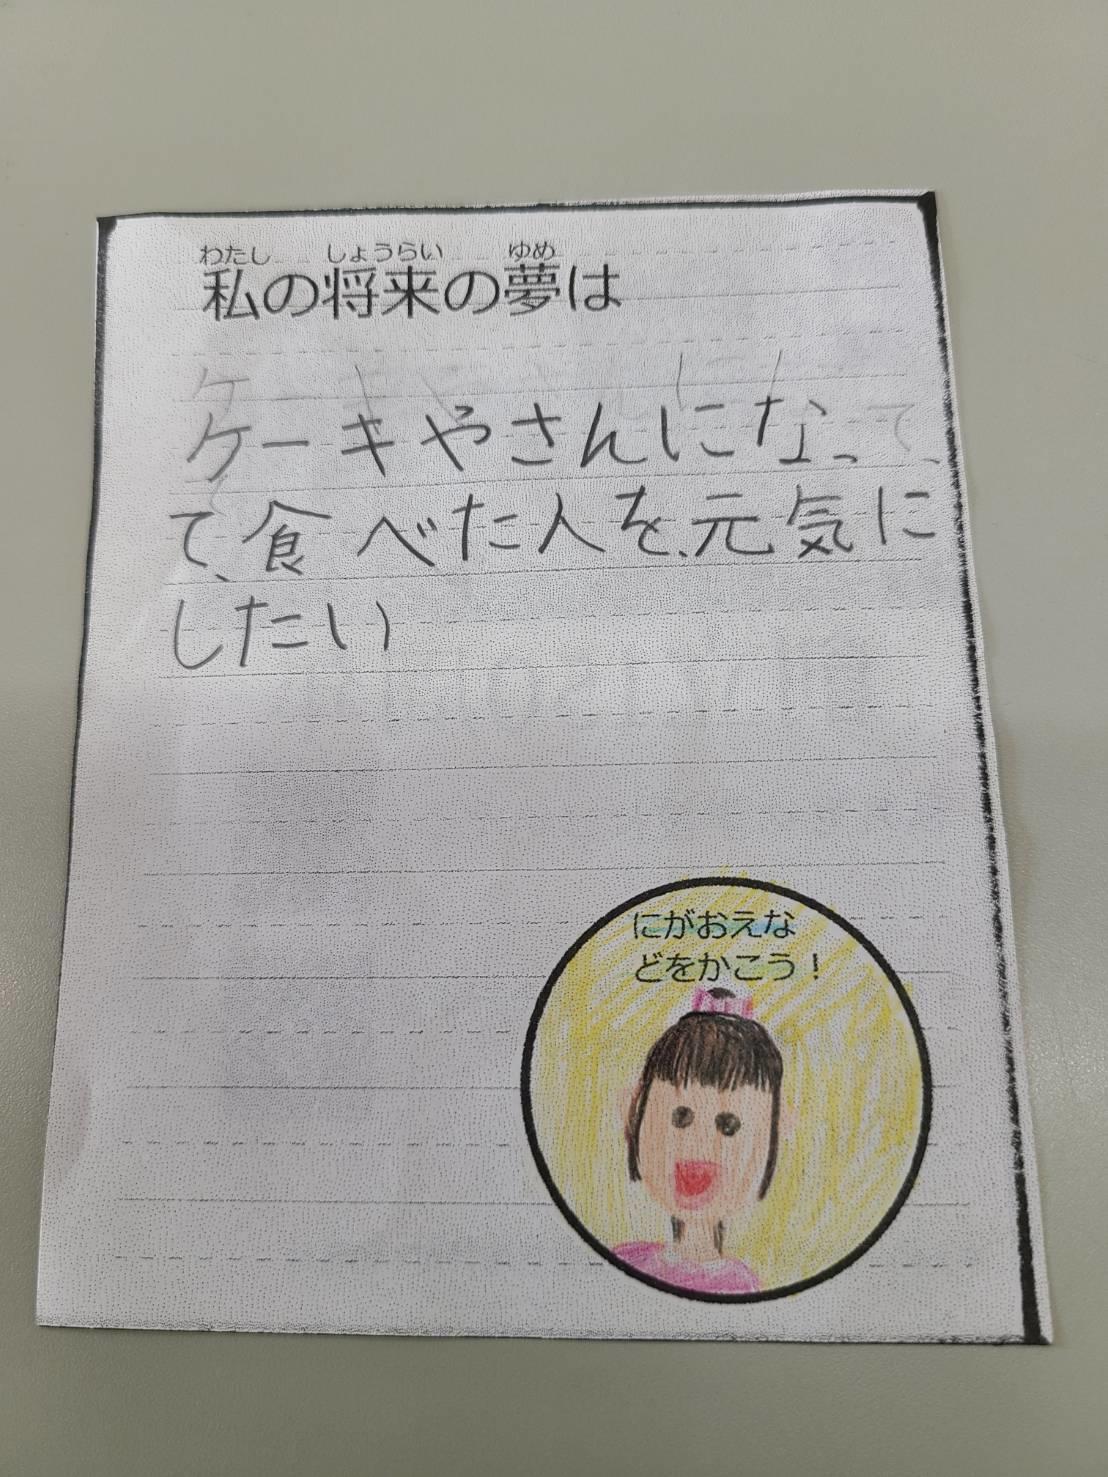 わたし しょうらい ゆめ
私の将来の夢は
ケーキやさんになっ
て、食べた人を、元気に
したい
にがおえな
どをかこう！